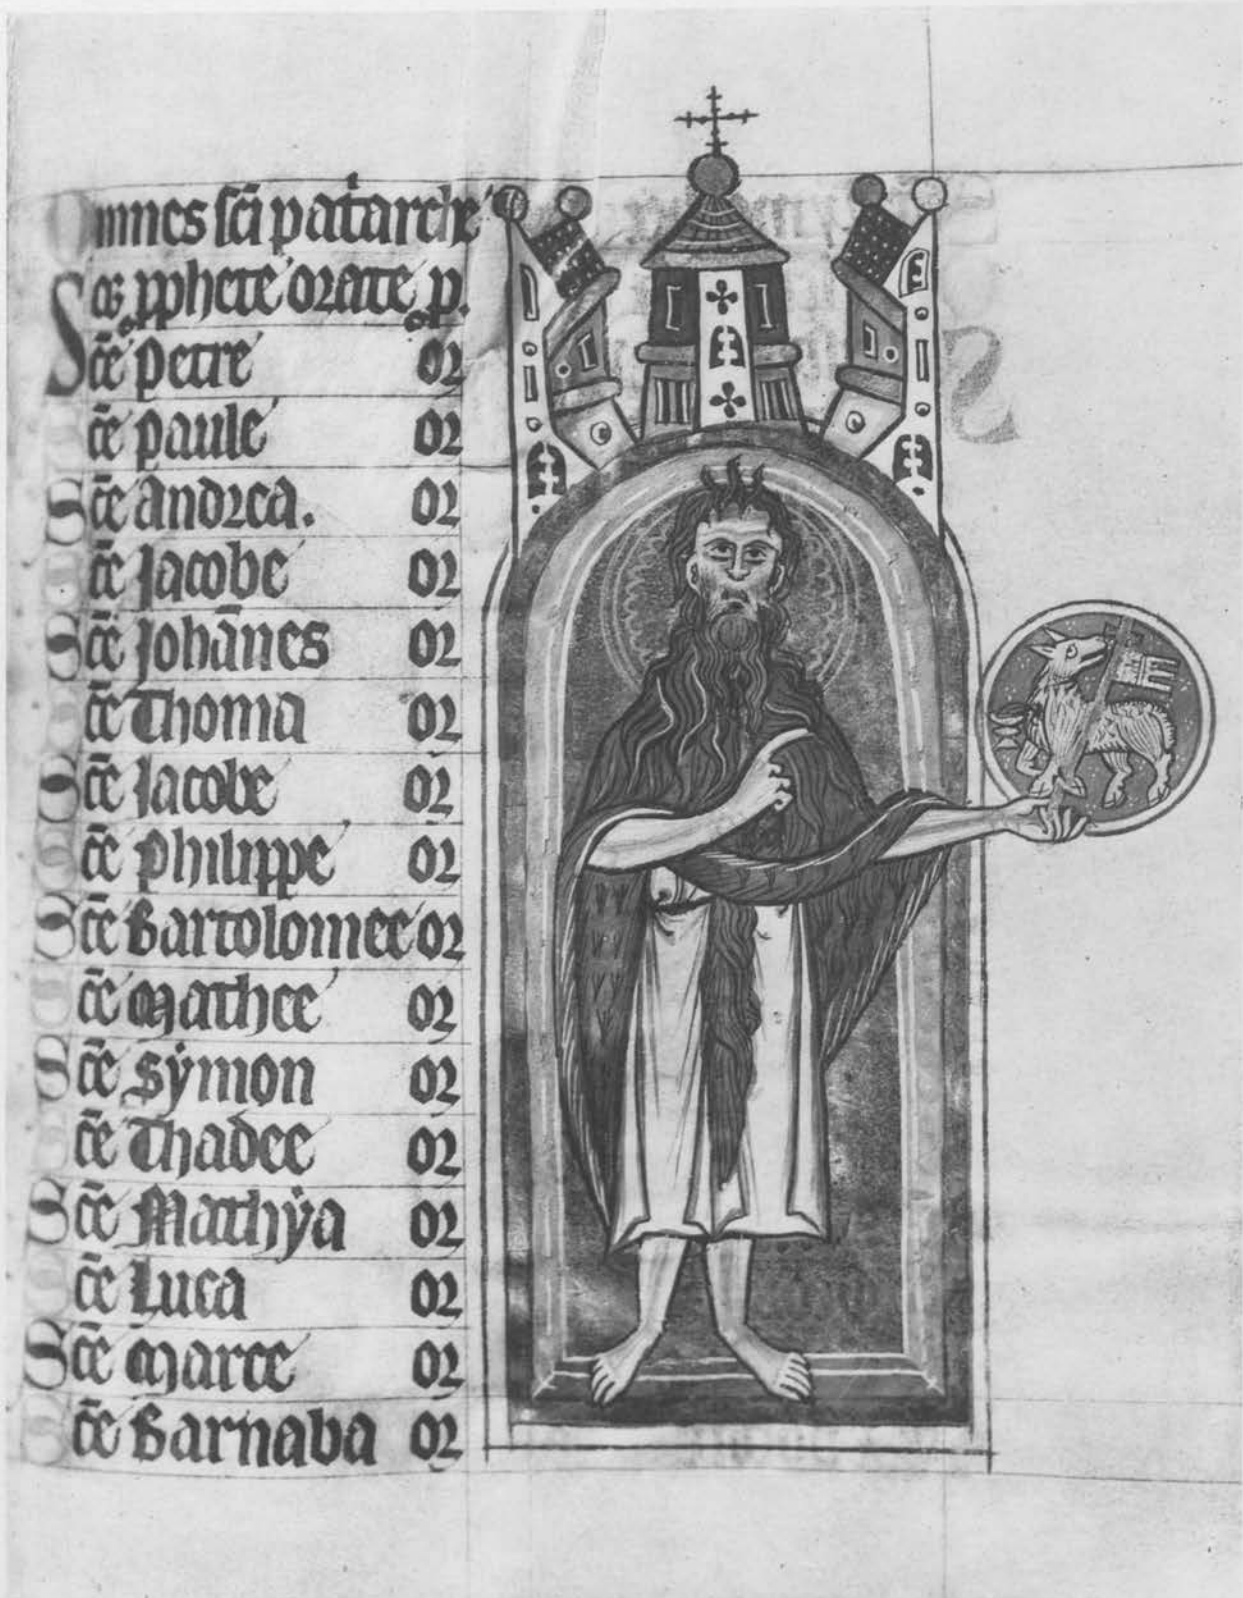 Omnes sc̄i patarche
et pphete orate p.
Sc̄e Petre or
Sc̄e paule or
Sc̄e andrea. or
Sc̄e Jacobe or
Sc̄e Johānes or
Sc̄e Thoma or
Sc̄e Jacobe or
Sc̄e philippe or
Sc̄e Bartolomee or
Sc̄e Mathee or
Sc̄e Symon or
Sc̄e Thadee or
Sc̄e Mathya or
Sc̄e Luca or
Sc̄e Marce or
Sc̄e Barnaba or